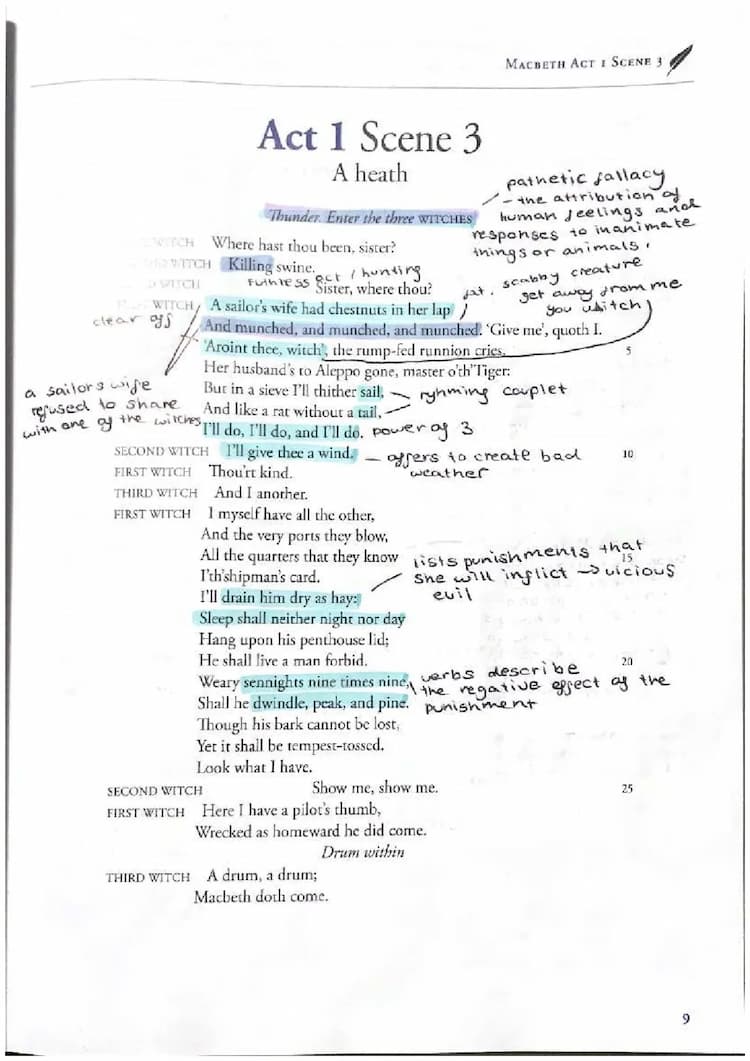 MACBETH ACT 1 SCENE 3
Act 1 Scene 3
A heath
pathetic fallacy
- the attribution of
human feelings and
responses to inanimate
things or animals.
Thunder. Enter the three WITCHES
WITCH Where hast thou been, sister?
WITCH Killing swine.
act / hunting
WITCH Sister, where thou?
fat, scabby creature
get away from me
you witch
WITCH A sailor's wife had chestnuts in her lap
clear off
And munched, and munched, and munched. 'Give me', quoth I.
'Aroint thee, witch', the rump-fed runnion cries. 5
Her husband's to Aleppo gone, master o'th'Tiger:
a sailors wife
refused to share
with one of the witches
But in a sieve I'll thither sail, ryhming couplet
And like a rat without a tail,
I'll do, I'll do, and I'll do. power of 3
SECOND WITCH I'll give thee a wind. 10
- offers to create bad
weather
FIRST WITCH Thou'rt kind.
THIRD WITCH And I another.
FIRST WITCH I myself have all the other,
And the very ports they blow,
All the quarters that they know 15
I'th'shipman's card.
lists punishments that
she will inflict → vicious
evil
I'll drain him dry as hay:
Sleep shall neither night nor day
Hang upon his penthouse lid;
He shall live a man forbid. 20
Weary sennights nine times nine,
Shall he dwindle, peak, and pine.
verbs describe
the negative effect of the
punishment
Though his bark cannot be lost,
Yet it shall be tempest-tossed.
Look what I have.
SECOND WITCH Show me, show me. 25
FIRST WITCH Here I have a pilot's thumb,
Wrecked as homeward he did come.
Drum within
THIRD WITCH A drum, a drum;
Macbeth doth come.
9